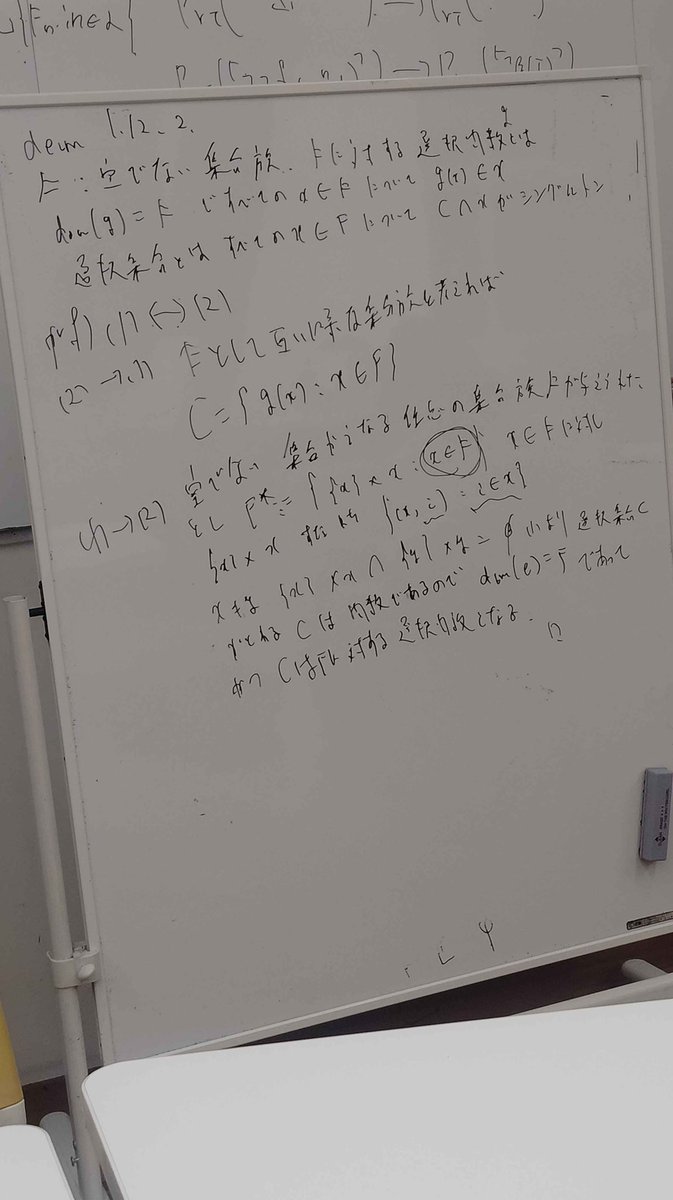 {Fn : n∈ω}
1.12.2.
F: 空でない集合族、Fに対する選択関数gとは
dom(g) = F ですべてのx∈Fについて g(x)∈x
選択集合とは すべてのx∈Fについて C∩xがシングルトン
prf) (1)↔(2)
(2)→(1) Fとして互いに素な集合族を考えれば
C = {g(x) : x∈F}
(1)→(2) 空でない集合からなる任意の集合族Fが与えられた
F* := {{x}×x : x∈F} x∈Fに対し
{x}×x {(x, i) : i∈x}
x≠y {x}×x ∩ {y}×y = ∅ より 選択集合C
がとれる Cは関数であるので dom(C)=F であって
かつ CはFに対する選択関数となる. □